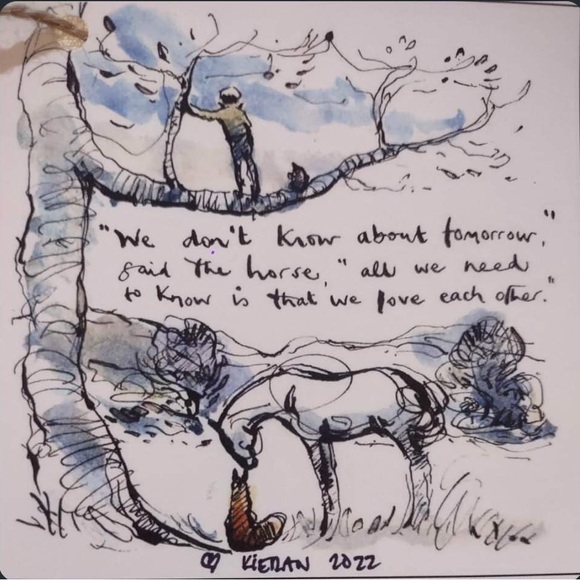 "We don't know about tomorrow,"
said the horse, "all we need
to know is that we love each other."
♡ KIERAN 2022